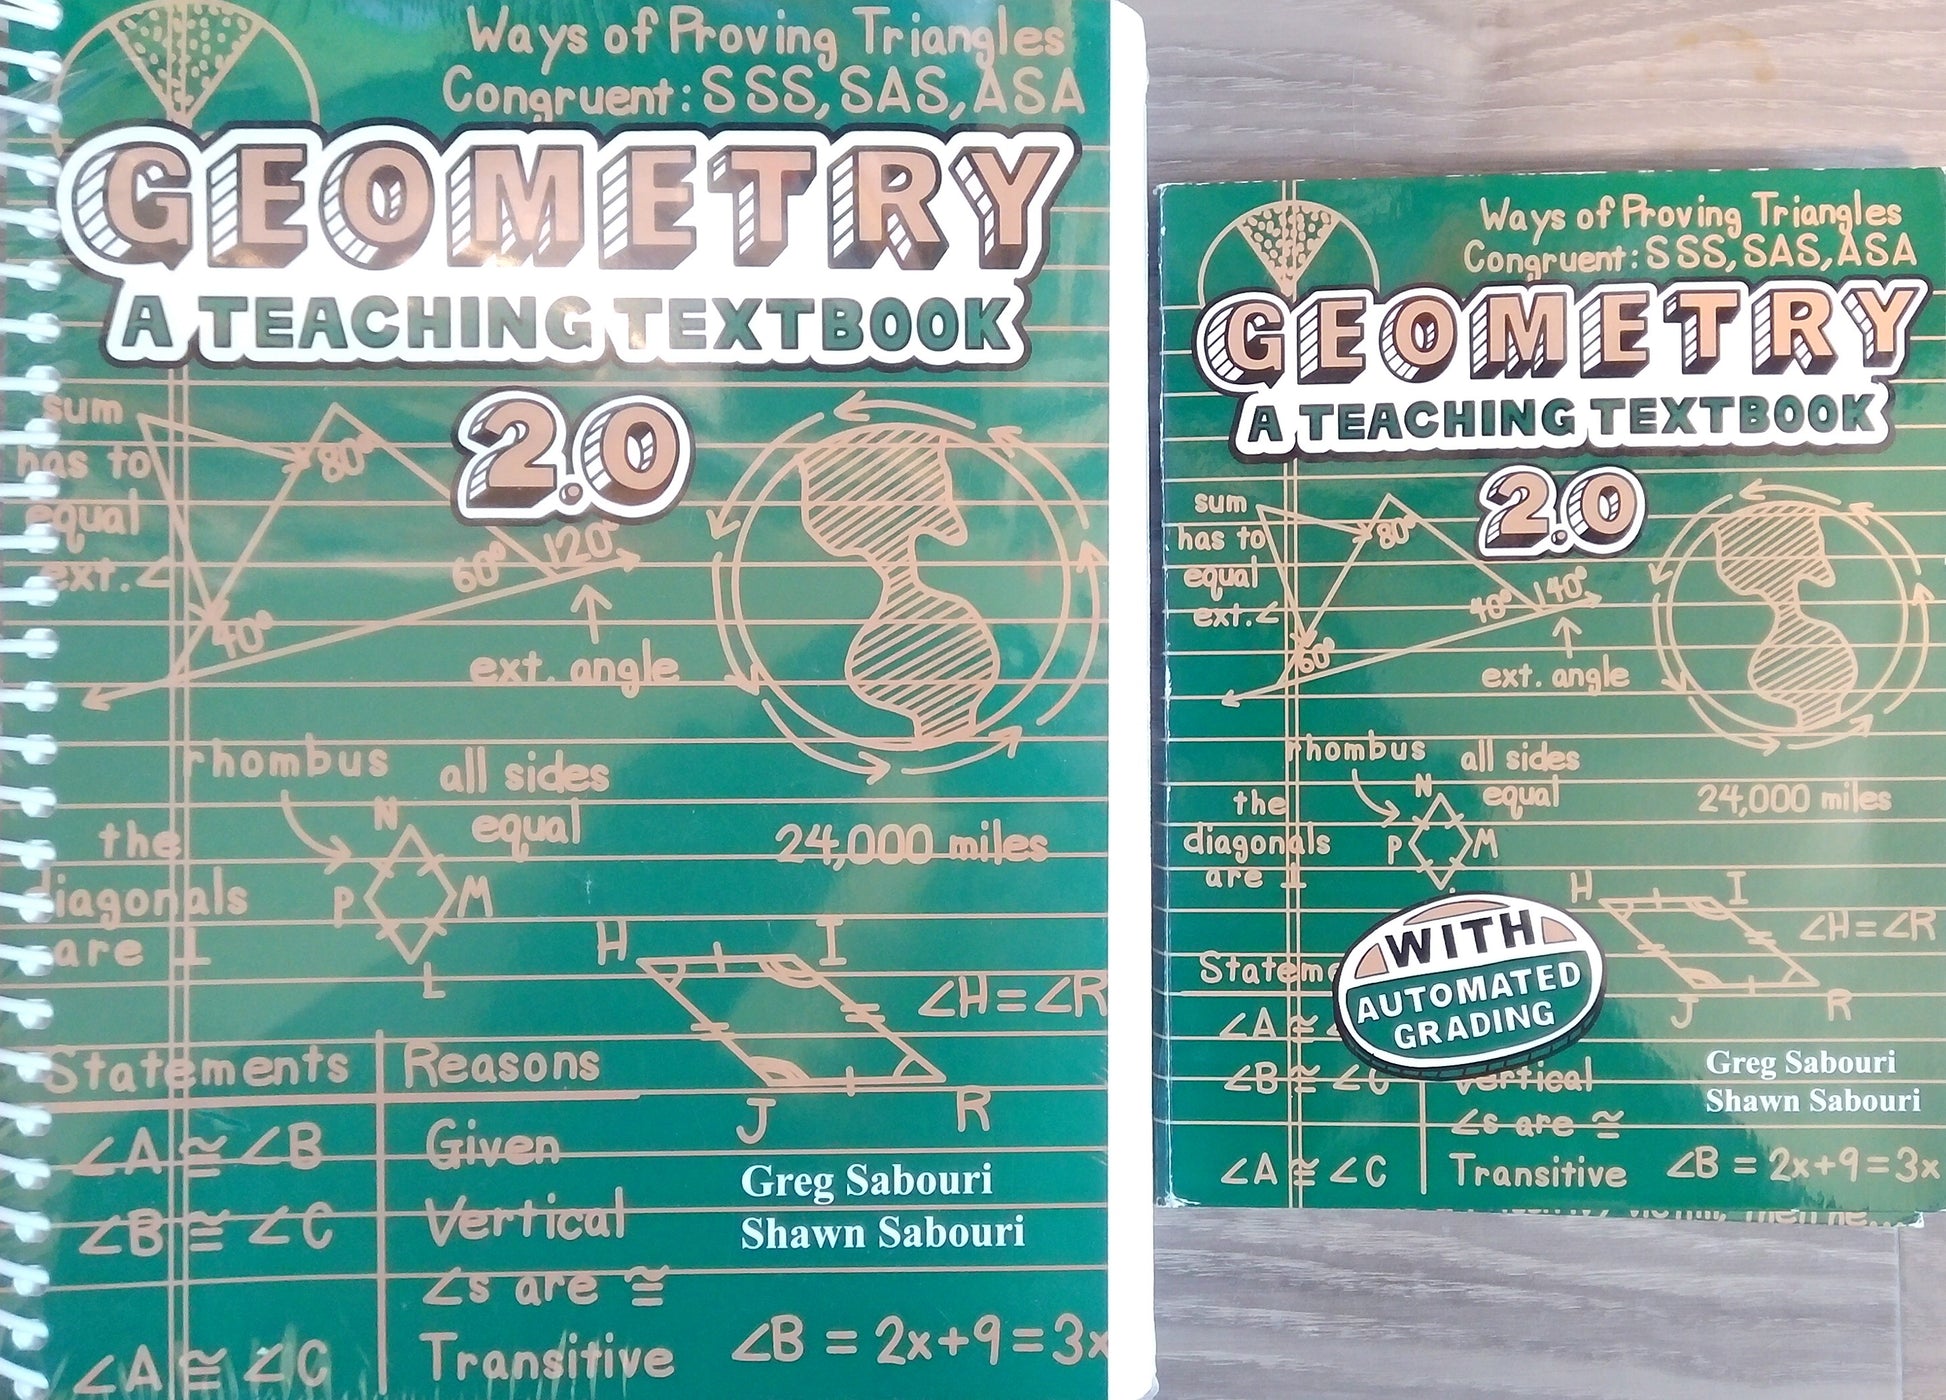 Ways of Proving Triangles
Congruent: SSS, SAS, ASA
GEOMETRY
A TEACHING TEXTBOOK
2.0
sum
has to
equal
ext. ∠
80°
60° 120°
40°
ext. angle
rhombus
all sides
equal
the
diagonals
are ⊥
N
P M
L
24,000 miles
H I
∠H = ∠R
J R
Statements Reasons
∠A ≅ ∠B Given
∠B ≅ ∠C Vertical
∠s are ≅
∠A ≅ ∠C Transitive
Greg Sabouri
Shawn Sabouri
∠B = 2x+9 = 3x
Ways of Proving Triangles
Congruent: SSS, SAS, ASA
GEOMETRY
A TEACHING TEXTBOOK
2.0
sum
has to
equal
ext. ∠
80°
40° 140°
60°
ext. angle
rhombus
all sides
equal
the
diagonals
are ⊥
N
P M
24,000 miles
H I
∠H = ∠R
J R
Statem
WITH
AUTOMATED
GRADING
∠A ≅ ∠
∠B ≅ ∠C Vertical
∠s are ≅
∠A ≅ ∠C Transitive
Greg Sabouri
Shawn Sabouri
∠B = 2x+9 = 3x